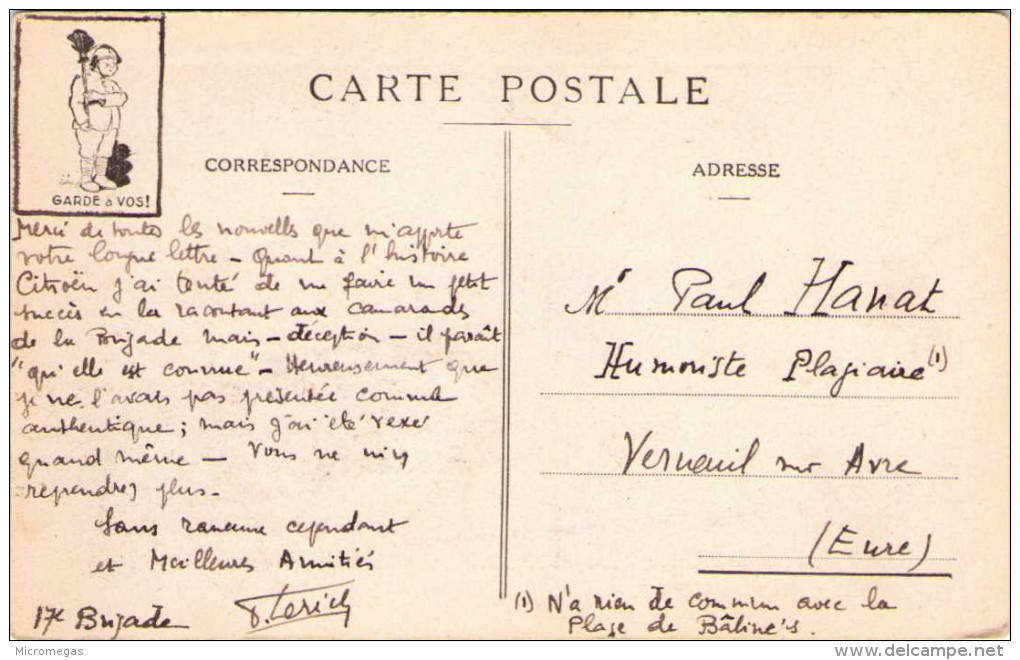 CARTE POSTALE
CORRESPONDANCE
ADRESSE
GARDE à VOS!
Merci de toutes les nouvelles que m'apporte
votre longue lettre – Quant à l'histoire
Citroën j'ai tenté de me faire un petit
succès en la racontant aux camarades
de la Brigade mais – déception – il paraît
"qu'elle est connue" – Heureusement que
je ne l'avais pas présentée comme
authentique ; mais j'ai été vexé
quand même – Vous ne m'y
reprendrez plus –
Sans rancune cependant
et Meilleures Amitiés
17e Brigade
Mr Paul Hanat
Humoriste Plagiaire (1)
Verneuil sur Avre
(Eure)
(1) N'a rien de commun avec la
Plage de Bâline's.
Micromegas
delcampe.net